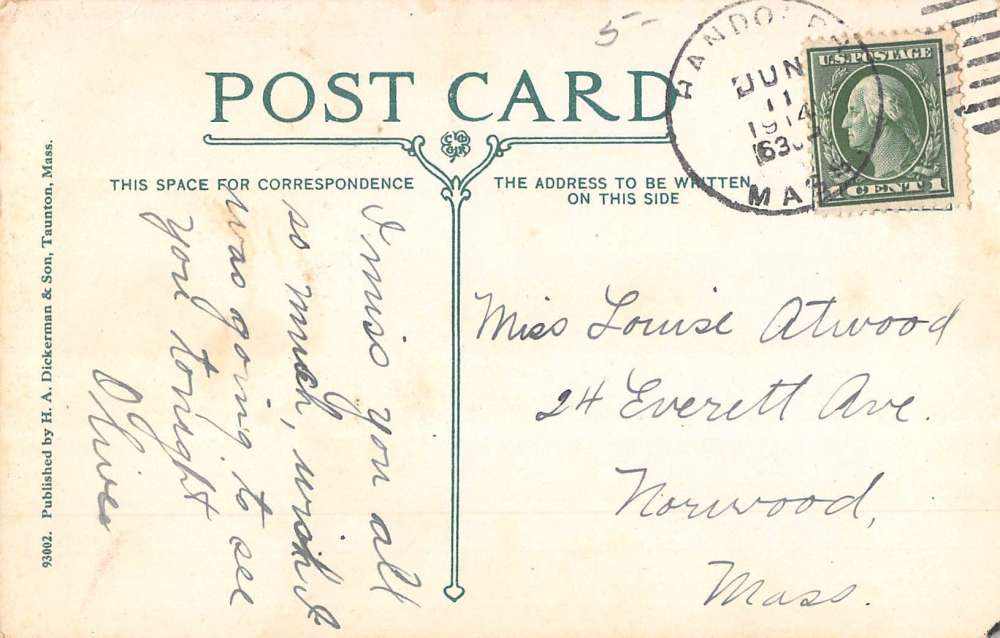 5-
RANDOLPH
JUN
11
1914
630P
MASS
U.S. POSTAGE
1 CENT 1
POST CARD
THIS SPACE FOR CORRESPONDENCE
THE ADDRESS TO BE WRITTEN
ON THIS SIDE
I miss you all
so much, wish I
was going to see
you tonight
Olive
Miss Louise Atwood
24 Everett Ave.
Norwood,
Mass.
93002. Published by H. A. Dickerman & Son, Taunton, Mass.